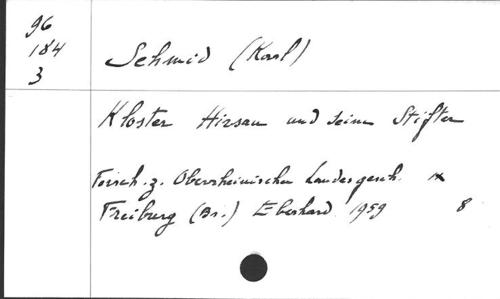 96
184
3
Schmid (Karl)
Kloster Hirsau und seine Stifter
Forsch. z. Oberrheinischen Landesgesch. IX
Freiburg (Br.) Eberhard 1959 8